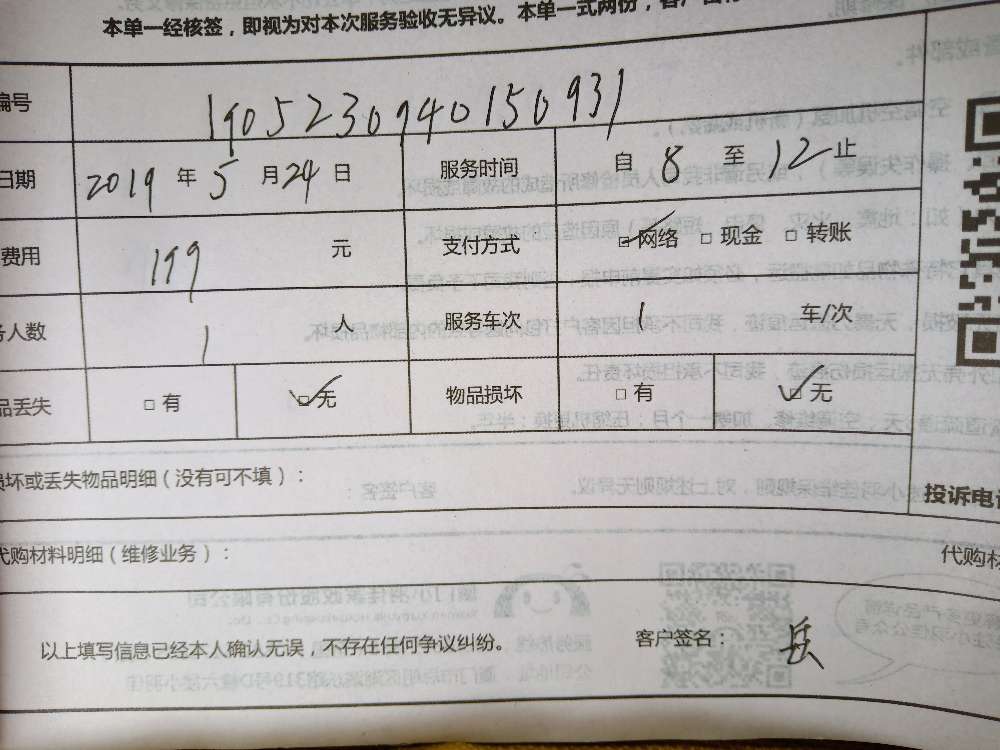 本单一经核签，即视为对本次服务验收无异议。本单一式两份，客户
编号 1905230940150931
日期 2019 年 5 月 24 日 服务时间 自 8 至 12 止
费用 199 元 支付方式 网络 □ 现金 □ 转账
人数 1 人 服务车次 1 车/次
品丢失 □ 有 □ 无 物品损坏 □ 有 □ 无
损坏或丢失物品明细（没有可不填）：
投诉电
代购材料明细（维修业务）：
代购材
以上填写信息已经本人确认无误，不存在任何争议纠纷。 客户签名： 岳